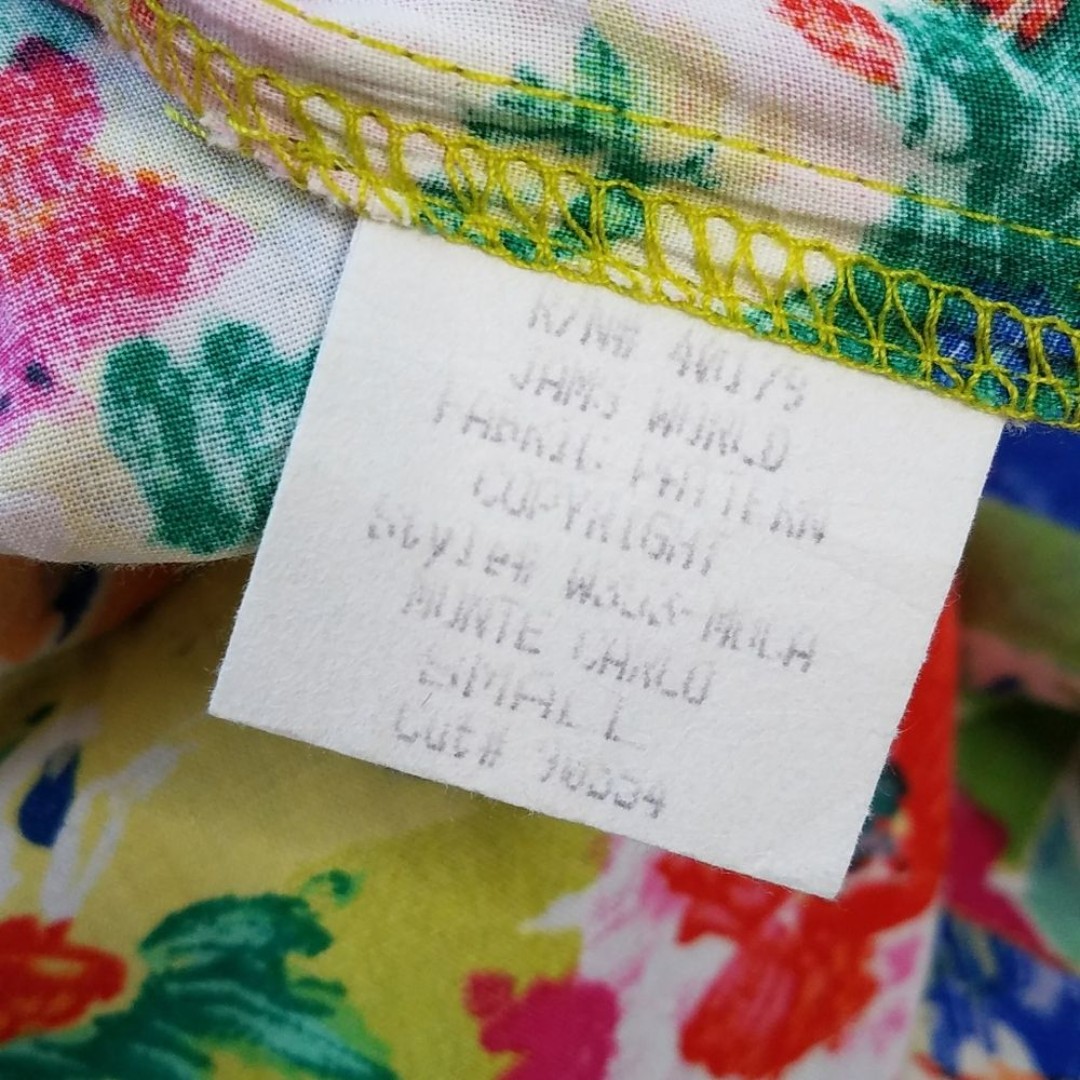 R/N# 40179
JAMS WORLD
FABRIC PATTERN
COPYRIGHT
Style#
MONTE CARLO
SMALL
Cut#